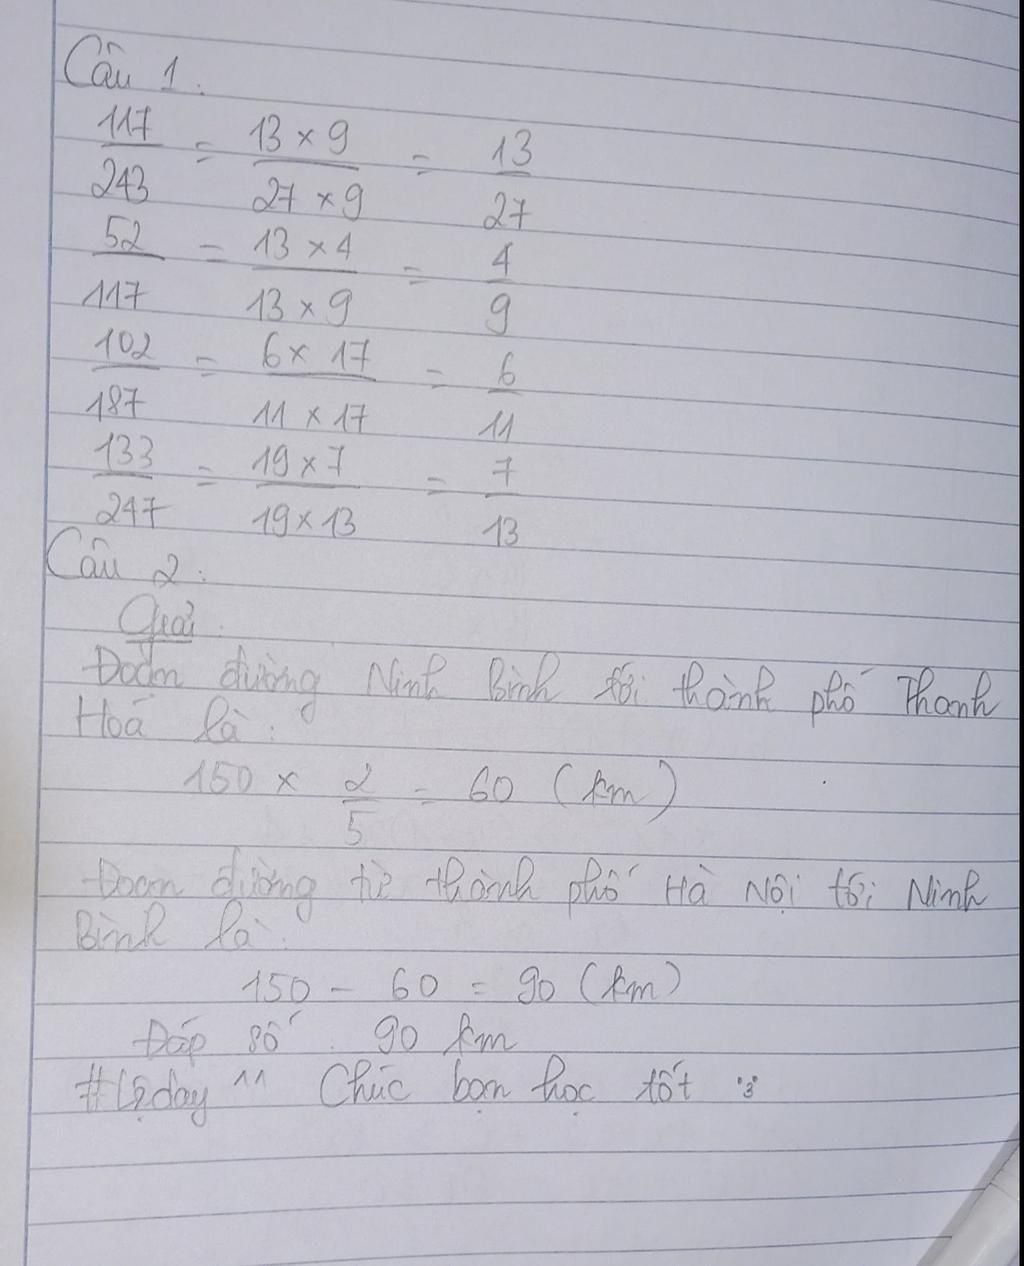 Câu 1.
117/243 = 13 × 9/27 × 9 = 13/27
52/117 = 13 × 4/13 × 9 = 4/9
102/187 = 6 × 17/11 × 17 = 6/11
133/247 = 19 × 7/19 × 13 = 7/13
Câu 2:
Giải
Đoạn đường Ninh Bình tới thành phố Thanh
Hoá là:
150 × 2/5 = 60 (km)
Đoạn đường từ thành phố Hà Nội tới Ninh
Bình là:
150 - 60 = 90 (km)
Đáp số: 90 km
Chúc bạn học tốt :3